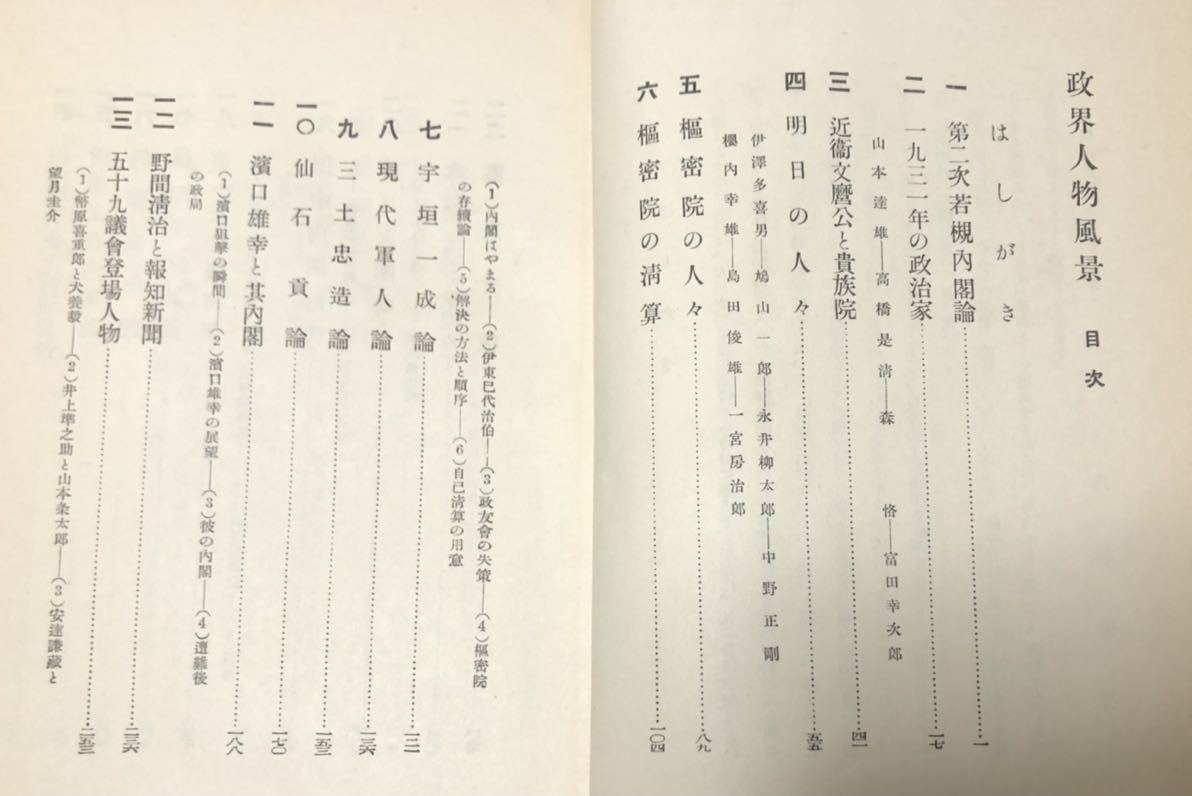 政界人物風景 目次
はしがき
一 第二次若槻內閣論……一
二 一九三一年の政治家……一七
山本達雄――高橋是淸――森 恪――富田幸次郎
三 近衞文麿公と貴族院……四一
四 明日の人々……五五
伊澤多喜男――鳩山一郎――永井柳太郎――中野正剛
櫻內幸雄――島田俊雄――一宮房治郎
五 樞密院の人々……八九
六 樞密院の淸算……一〇四
(1)內閣はやまる――(2)伊東巳代治伯――(3)政友會の失策――(4)樞密院
の存續論――(5)解決の方法と順序――(6)自己淸算の用意
七 宇垣一成論……一二一
八 現代軍人論……一三六
九 三土忠造論……一五三
一〇 仙石 貢論……一七〇
一一 濱口雄幸と其內閣……一八八
(1)濱口狙擊の瞬間――(2)濱口雄幸の展望――(3)彼の內閣――(4)遭難後
の政局
一二 野間淸治と報知新聞……二三六
一三 五十九議會登場人物……二五三
(1)幣原喜重郎と犬養毅――(2)井上準之助と山本条太郎――(3)安達謙藏と
望月圭介